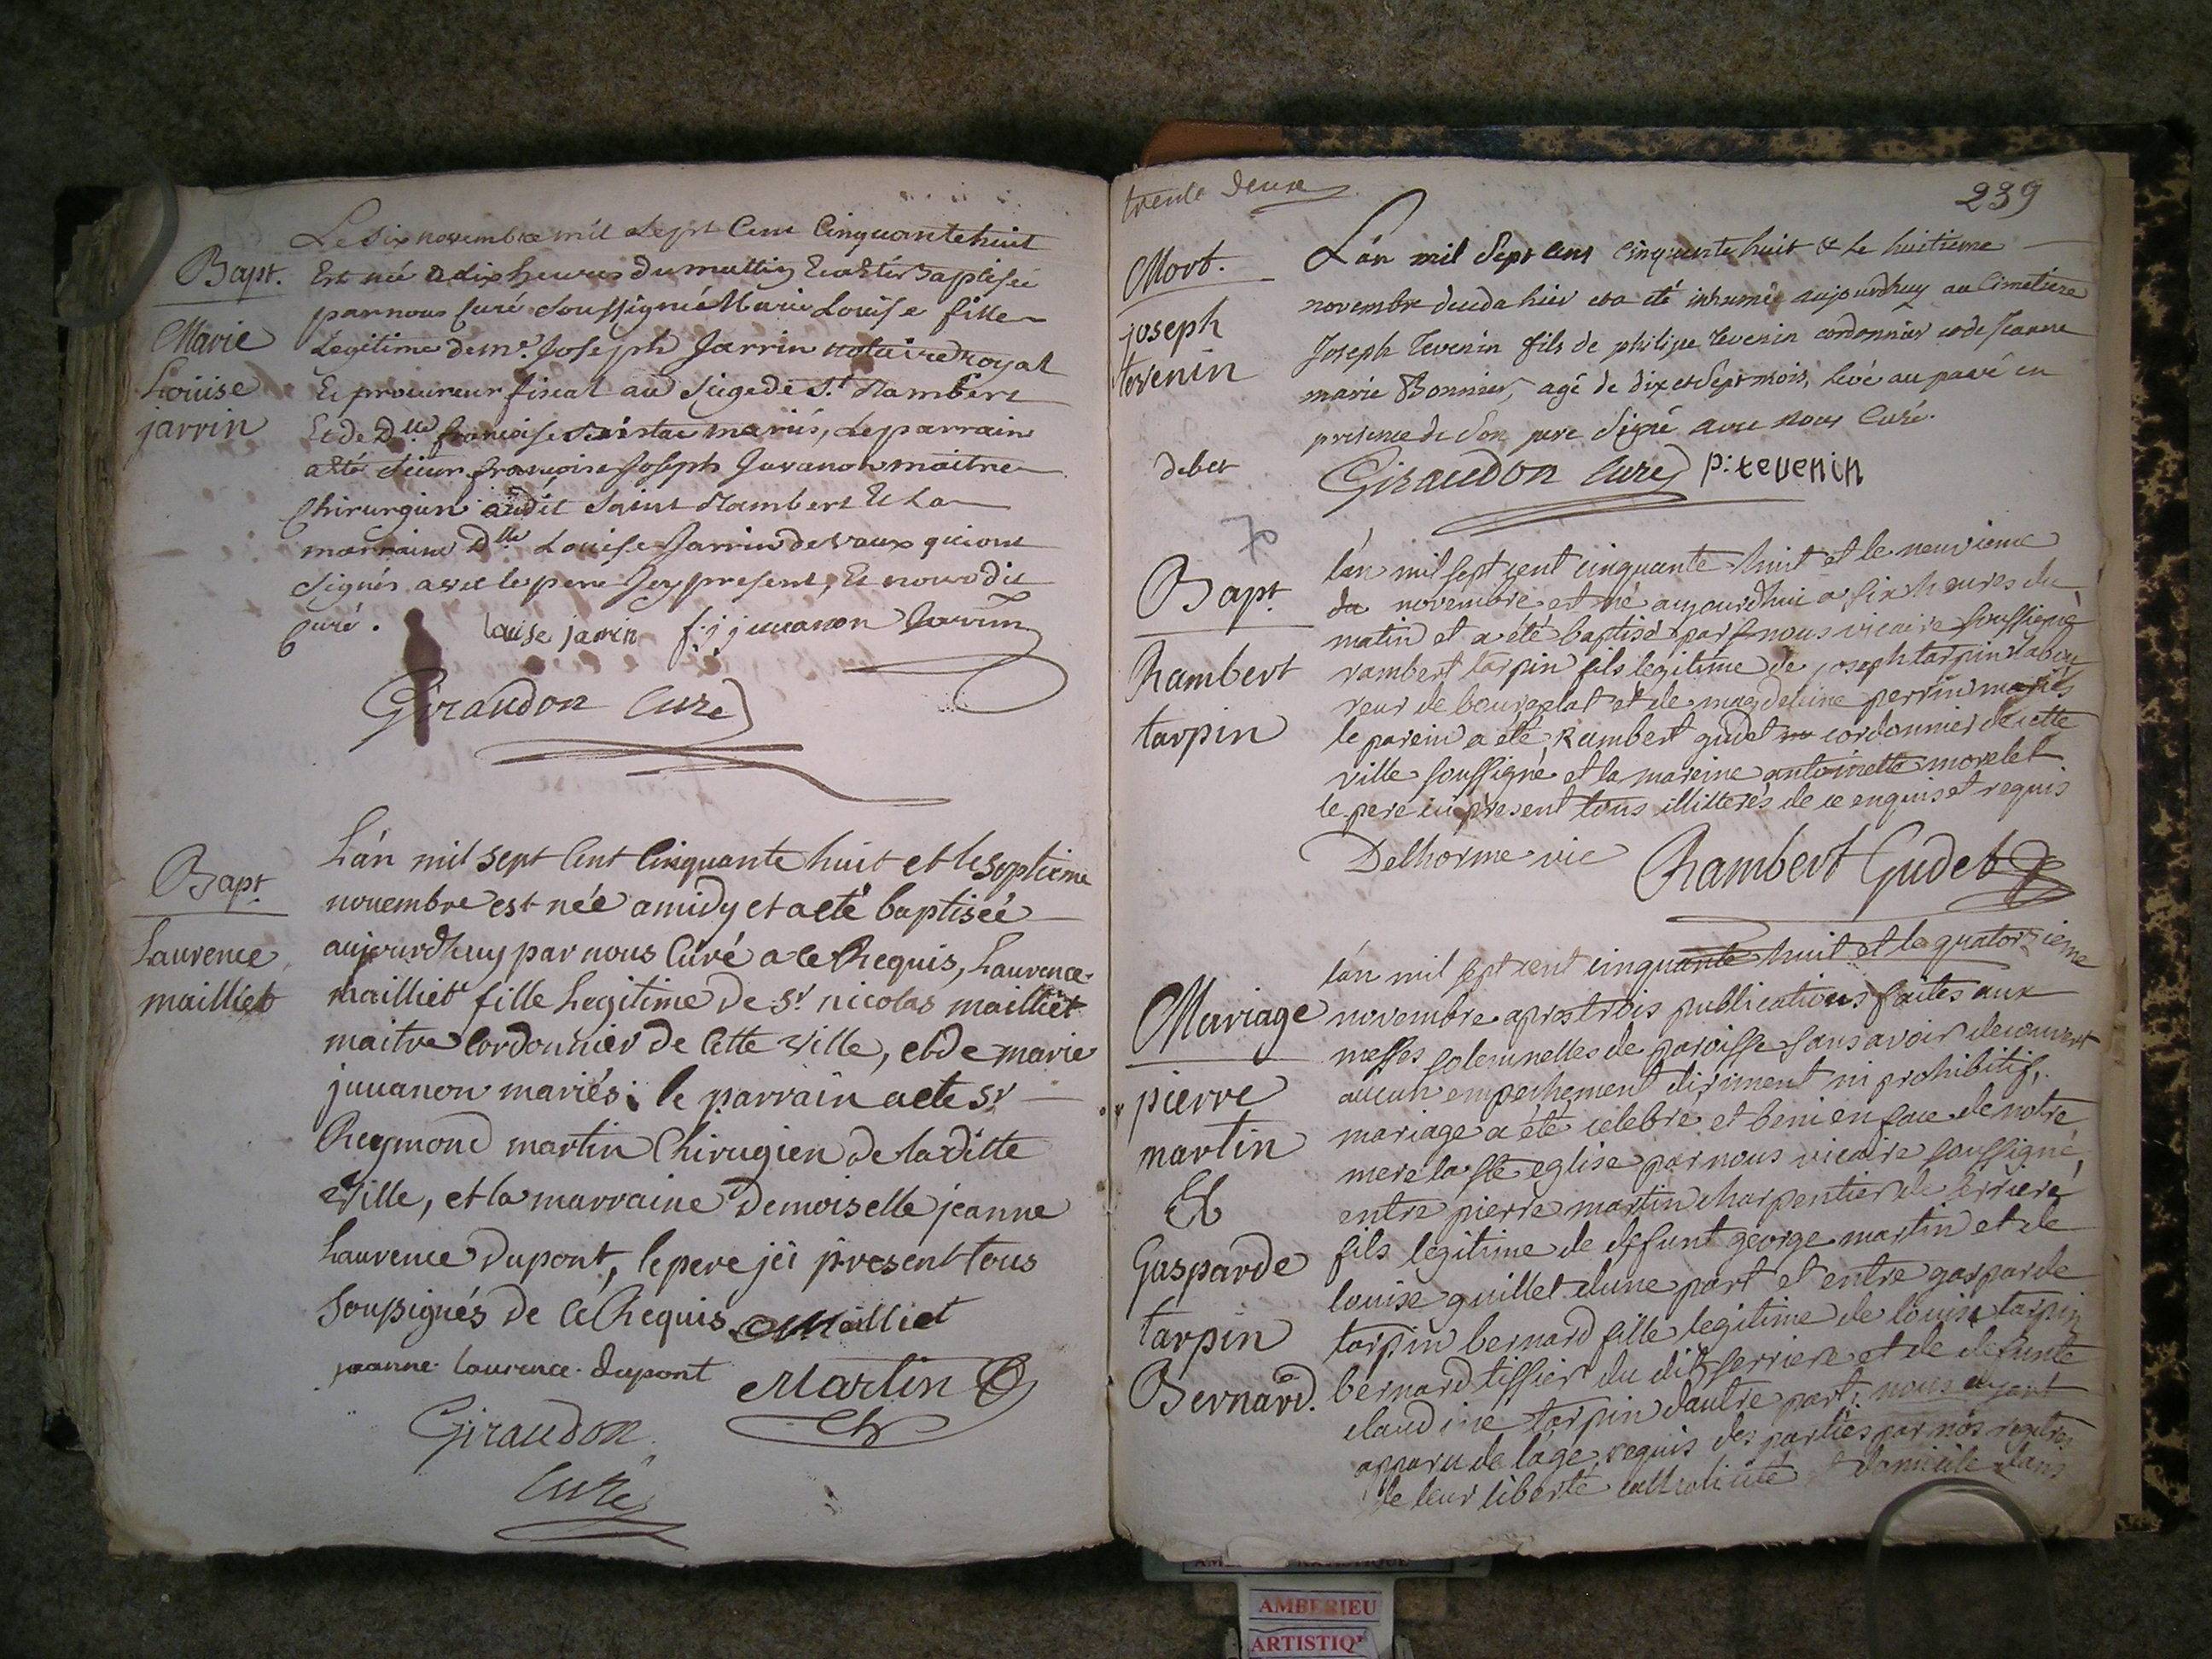 Bapt.
Marie
Loüise
jarrin
Le Six novembre mil Sept Cent Cinquante huit
Est née a dix heures du mattin Et a Eté Baptisée
par nous Curé Soussigné Marie Louise fille
Légitime de me. Joseph Jarrin notaire Royal
Et procureur fiscal au Siege de St. Rambert
Et de Dlle francoise mariés, Le parrain
a Eté Sieur françois Joseph Juvanon maitre
Chirurgien audit Saint Rambert Et La
marraine Dlle Louise Jarrin de vaux qui ont
Signés avec le pere Icy present, Et nous dit
Curé.
louise jarrin f. j juuanon Jarrin
Giraudon Curé
Bapt.
Laurence
mailliet
L'án mil sept Cent Cinquante huit et le septieme
nouembre est née a midy et a eté baptiseé
aujourdhuy par nous Curé a ce Requis, Laurence
mailliet fille Legitime de Sr. nicolas mailliet
maitre Cordonnier de Cette ville, et de marie
juuanon mariés; le parrain a ete Sr
Reymond martin Chirugien de la ditte
ville, et la marraine Demoiselle jeanne
Laurence Dupont, le pere jci present tous
Soussignés de Ce Requis Mailliet
jeanne laurence dupont Martin
Giraudon
Curé
trente deux
239
Mort.
joseph
tevenin
debet
L'án mil Sept cens cinquante huit & le huitieme
novembre decedа hier et a été inhumé aujourdhuy au Cimetiere
Joseph Tevenin fils de philipe Tevenin cordonnier et de Jeanne
marie Bonnier, agé de dix et Sept mois, levé au pavé en
presence de Son pere Signé avec nous Curé.
Giraudon Curé p: tevenin
70
Bapt.
Rambert
tarpin
lán mil sept cent cinquante huit et le neuvieme
du novembre est né aujourdhui a six heures du
matin et a été baptisé par nous vicaire soussigné
rambert tarpin fils legitime de joseph tarpin labou
reur de bourgelat et de magdeleine perrin mariés
le parein a été Rambert gudet cordonnier de cette
ville soussigné et la mareine antoinette morelet
le pere ici present tous illitterés de ce enquis et requis
Delhorme vic Rambert Gudet
Mariage
pierre
martin
Et
Gasparde
tarpin
Bernard.
lán mil sept cent cinquante huit et le quatorzieme
novembre apres trois publications faites aux
messes solemnelles de paroisse sans avoir decouvert
aucun empechement dirriment ni prohibitif,
mariage a été celebre et beni en face de notre
mere la ste eglise par nous vicaire soussigné,
entre pierre martin charpentier de serriere
fils legitime de defunt george martin et de
louise guillet dune part et entre gasparde
tarpin bernard fille legitime de louis tarpin
bernard tissier du dit serriere et de defunte
claudine tarpin dautre part, nous ayant
apparu de lage requis des parties par nos regitres
de leur liberté catholicité et domicile dans
AMBERIEU
ARTISTIQ